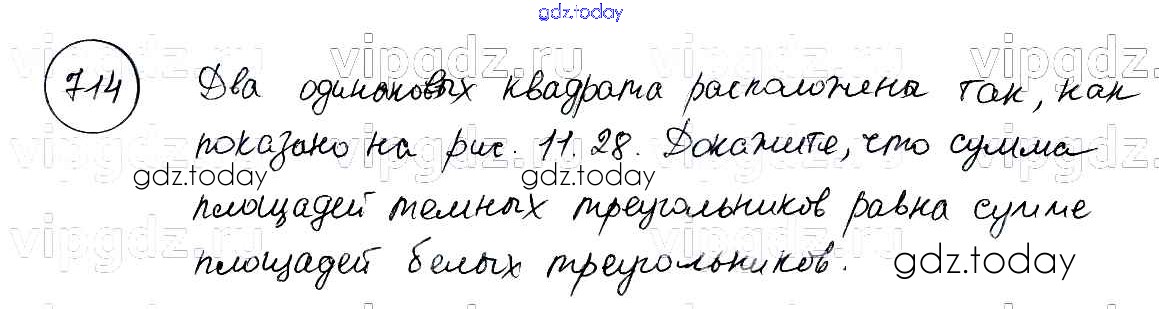 gdz.today
vipgdz.ru vipgdz.ru vipgdz.ru
714 Два одинаковых квадрата расположены так, как
показано на рис. 11.28. Докажите, что сумма
gdz.today gdz.today
площадей темных треугольников равна сумме
vipgdz.ru vipgdz.ru vipgdz.ru
площадей белых треугольников. gdz.today